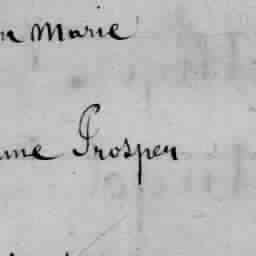 n Marie
me Prosper